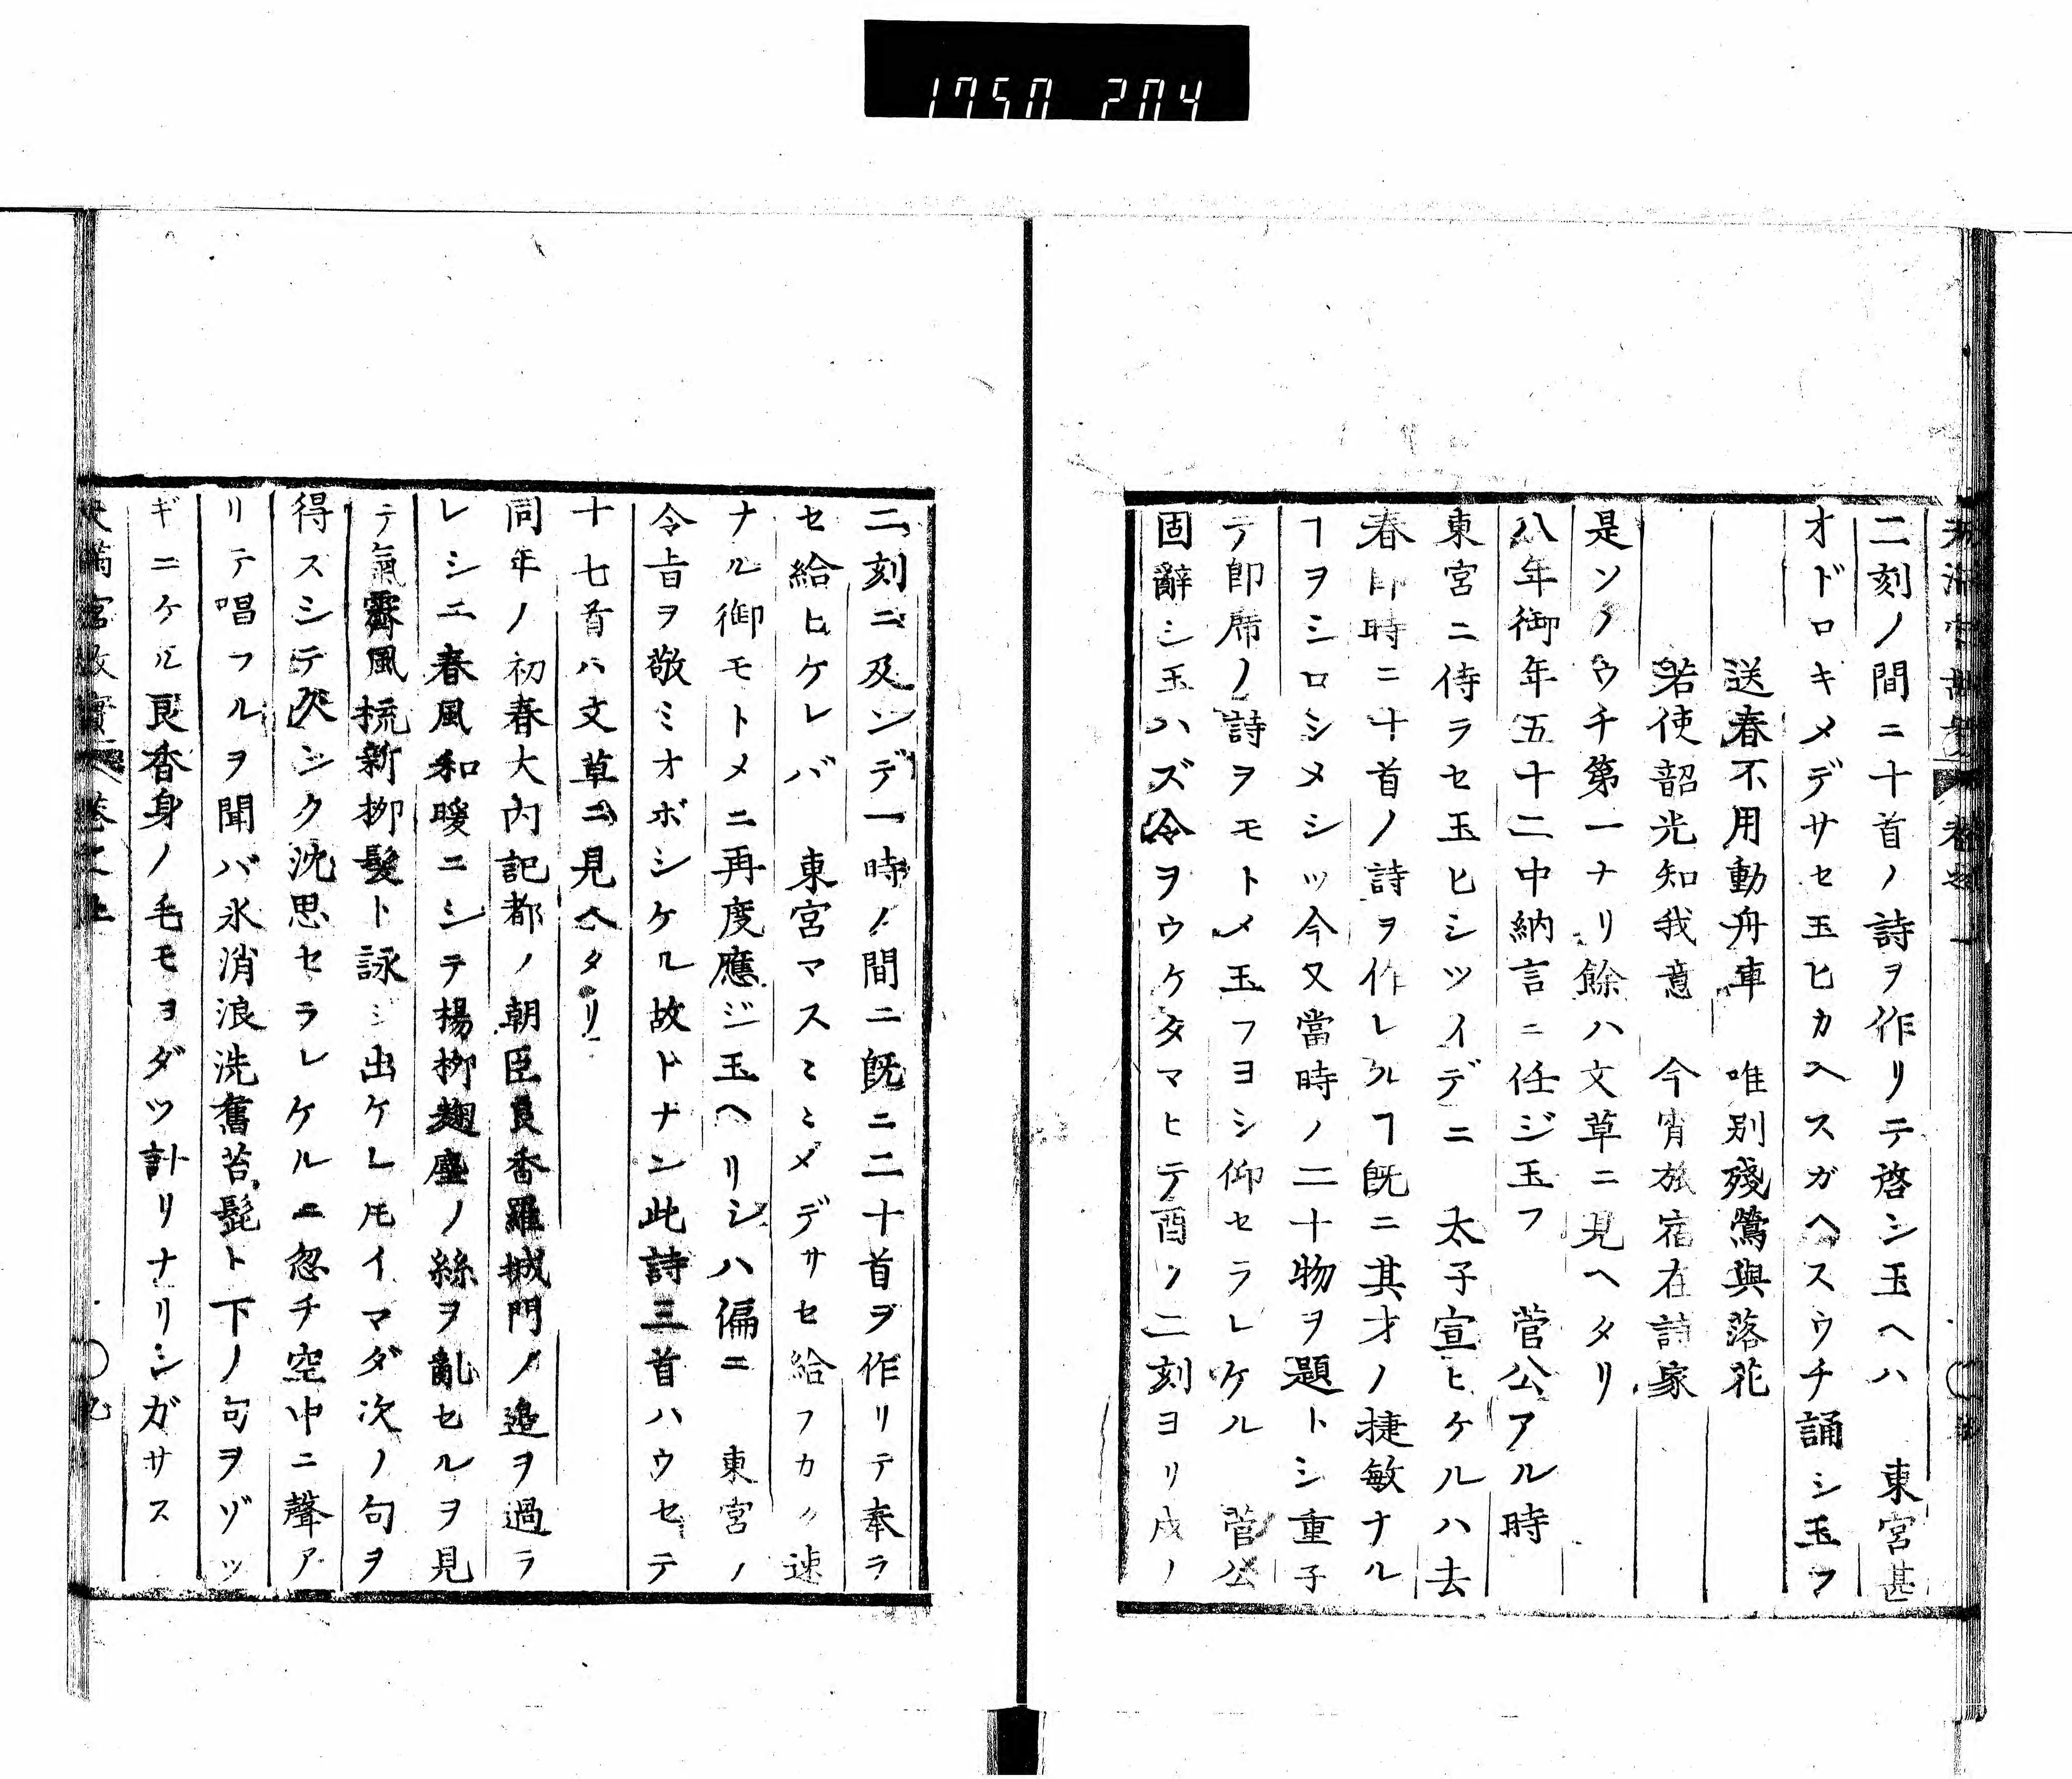 1750 204
二刻ノ間ニ十首ノ詩ヲ作リテ啓シ玉ヘハ　東宮甚
オドロキメデサセ玉ヒカヘスガヘスウチ誦シ玉フ
送春不用動舟車　唯別殘鶯與落花
若使韶光知我意　今宵旅宿在詩家
是ソノウチ第一ナリ餘ハ文草ニ見ヘタリ
八年御年五十二中納言ニ任ジ玉フ　菅公アル時
東宮ニ侍ラセ玉ヒシツイデニ　太子宣ヒケルハ去
春即時ニ十首ノ詩ヲ作レルヿ既ニ其才ノ捷敏ナル
ヿヲシロシメシツ今又當時ノ二十物ヲ題トシ重子
テ即席ノ詩ヲモトメ玉フヨシ仰セラレケル　菅公
固辭シ玉ハズ令ヲウケタマヒテ酉ノ二刻ヨリ戌ノ
二刻ニ及ンデ一時ノ間ニ既ニ二十首ヲ作リテ奉ラ
セ給ヒケレバ　東宮マスミミメデサセ給フカク速
ナル御モトメニ再度應ジ玉ヘリシハ偏ニ　東宮ノ
令旨ヲ敬ミオボシケル故ドナン此詩三首ハウセテ
十七首ハ文草ニ見ヘタリ
同年ノ初春大内記都ノ朝臣良香羅城門ノ邉ヲ過ラ
レシニ春風和暖ニシテ楊柳麹塵ノ絲ヲ亂セルヲ見
テ氣霽風梳新柳髮ト詠ジ出ケレ𪜈イマダ次ノ句ヲ
得スシテ久シク沈思セラレケルニ忽チ空中ニ聲ア
リテ唱フルヲ聞バ氷消浪洗舊苔髭ト下ノ句ヲヅッ
ギニケル良香身ノ毛モヨダツ計リナリシガサス
天滿宮故實　卷之上　九